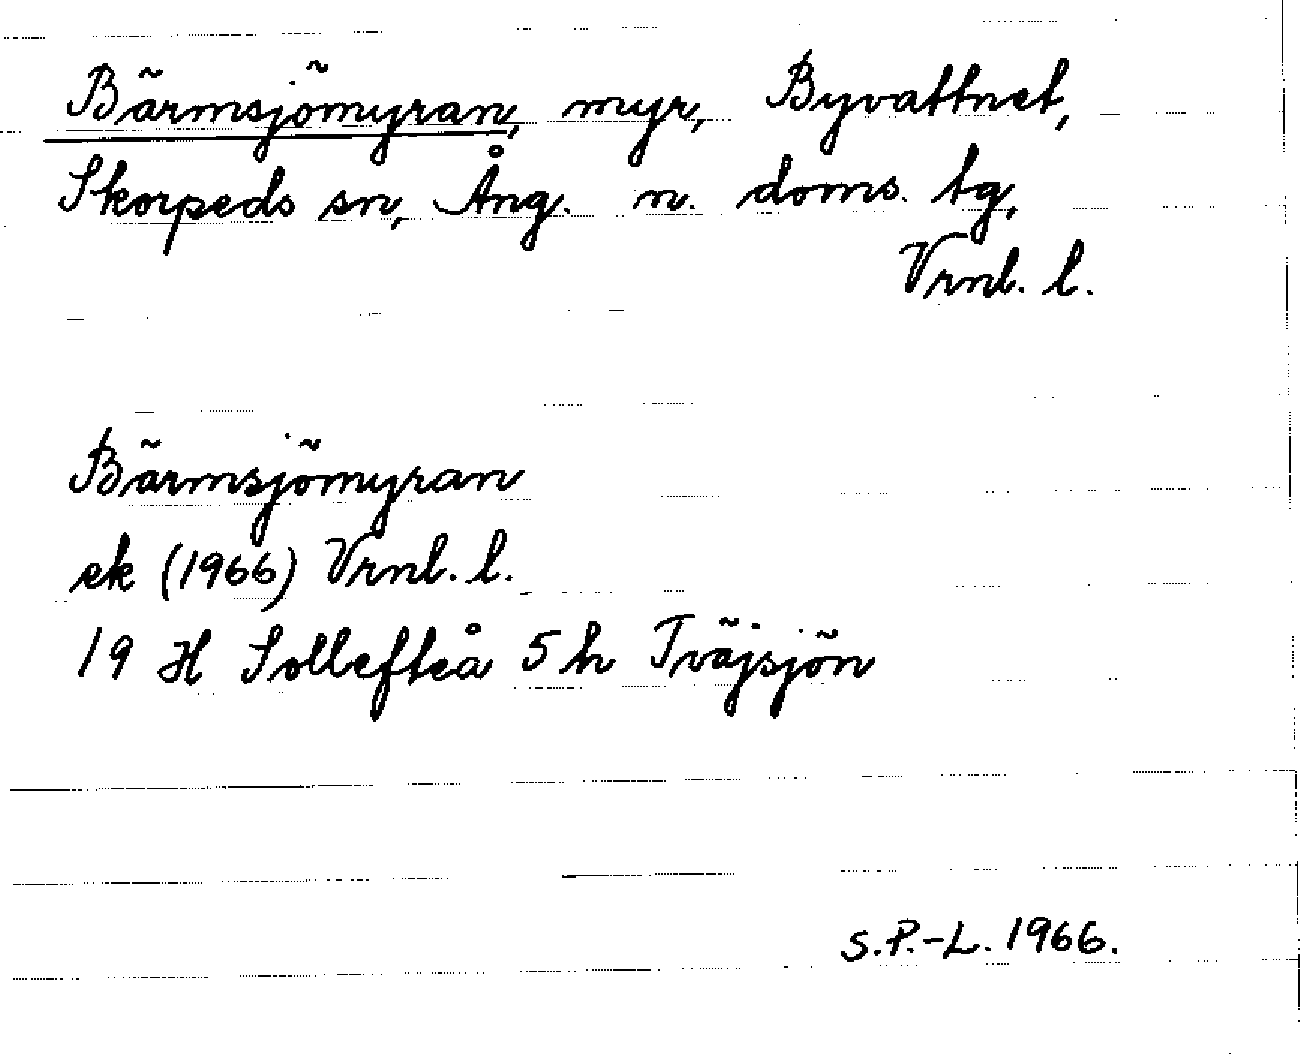 Bärmsjömyran, myr, Byvattnet,
Skorpeds sn, Ång. n. doms. tg,
Vrnl. l.
Bärmsjömyran
ek (1966) Vrnl. l.
19 H Sollefteå 5 h Tväjsjön
S.P.-L. 1966.